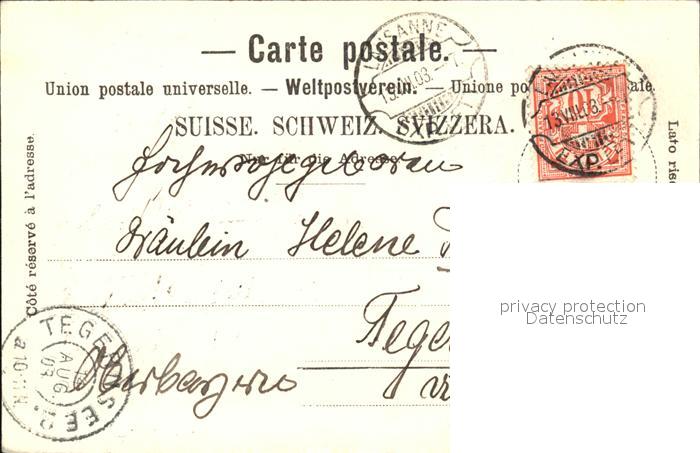 — Carte postale. —
Union postale universelle. — Weltpostverein. — Unione po ale.
SUISSE. SCHWEIZ. SVIZZERA.
Nur für die Adresse.
Côté réservé à l'adresse.
Lato ris
LAUSANNE
13.VIII.03.–7.
EXP.
13.VIII.03.
EXP.
10
Hochwohlgeboren
Fräulein Helene
Tege
Oberbayern
TEGERNSEE 2.
AUG
03
privacy protection
Datenschutz